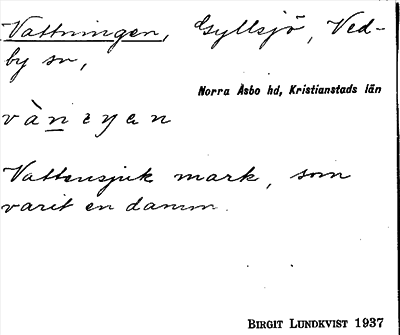 Vattningen, Gyllsjö, Ved-
by sn,
Norra Åsbo hd, Kristianstads län
Vattensjuk mark, som
varit en damm.
BIRGIT LUNDKVIST 1937